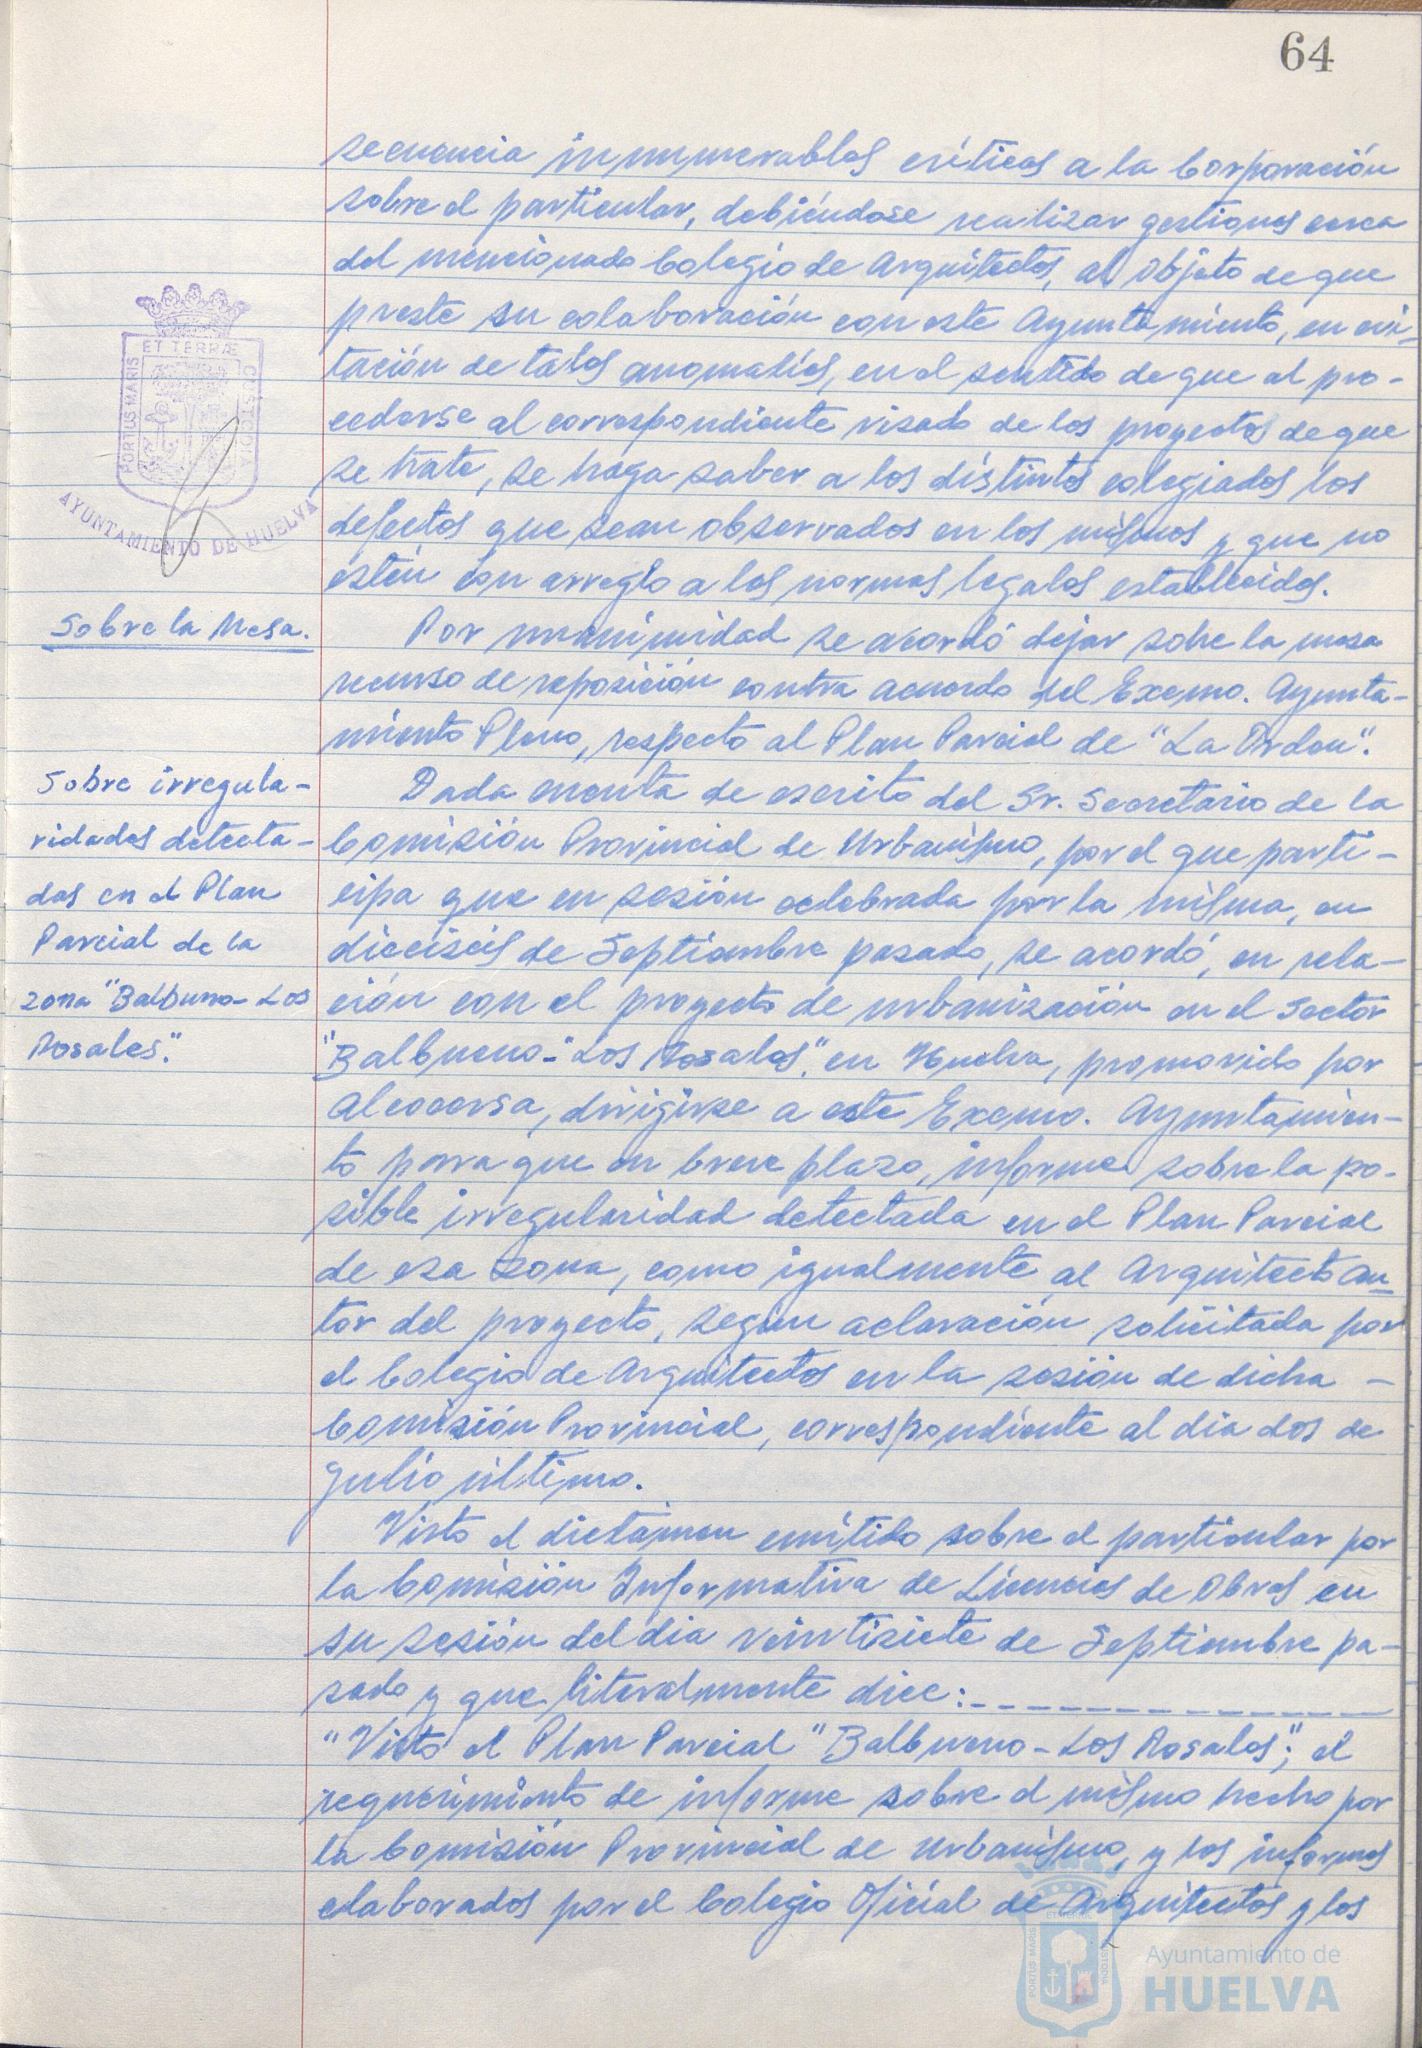 64
secuencia innumerables críticas a la Corporación
sobre el particular, debiéndose realizar gestiones cerca
del mencionado Colegio de Arquitectos, al objeto de que
preste su colaboración con este Ayuntamiento, en evi-
tación de tales anomalías, en el sentido de que al pro-
cederse al correspondiente visado de los proyectos de que
se trate, se haga saber a los distintos colegiados los
defectos que sean observados en los mismos y que no
estén con arreglo a las normas legales establecidas.
ET TERRÆ
PORTUS MARIS
CUSTODIA
AYUNTAMIENTO DE HUELVA
Sobre la Mesa.
Por unanimidad se acordó dejar sobre la mesa
recurso de reposición contra acuerdo del Excmo. Ayunta-
miento Pleno, respecto al Plan Parcial de "La Orden".
Sobre irregula-
ridades detecta-
das en el Plan
Parcial de la
zona "Balbueno-Los
Rosales".
Dada cuenta de escrito del Sr. Secretario de la
Comisión Provincial de Urbanismo, por el que parti-
cipa que en sesión celebrada por la misma, en
dieciséis de Septiembre pasado, se acordó, en rela-
ción con el proyecto de urbanización en el Sector
"Balbueno-"Los Rosales". en Huelva, promovido por
Alcocersa, dirigirse a este Excmo. Ayuntamien-
to para que en breve plazo, informe sobre la po-
sible irregularidad detectada en el Plan Parcial
de esa zona, como igualmente al Arquitecto au-
tor del proyecto, según aclaración solicitada por
el Colegio de Arquitectos en la sesión de dicha -
Comisión Provincial, correspondiente al dia dos de
Julio último.
Visto el dictámen emitido sobre el particular por
la Comisión Informativa de Licencias de Obras en
su sesión del dia veintisiete de Septiembre pa-
sado y que literalmente dice:_ _ _ _ _ _ _ _ _ _ _
"Visto el Plan Parcial "Balbueno-Los Rosales"; el
requerimiento de informe sobre el mismo hecho por
la Comisión Provincial de Urbanismo, y los informes
elaborados por el Colegio Oficial de Arquitectos y los
Ayuntamiento de
HUELVA